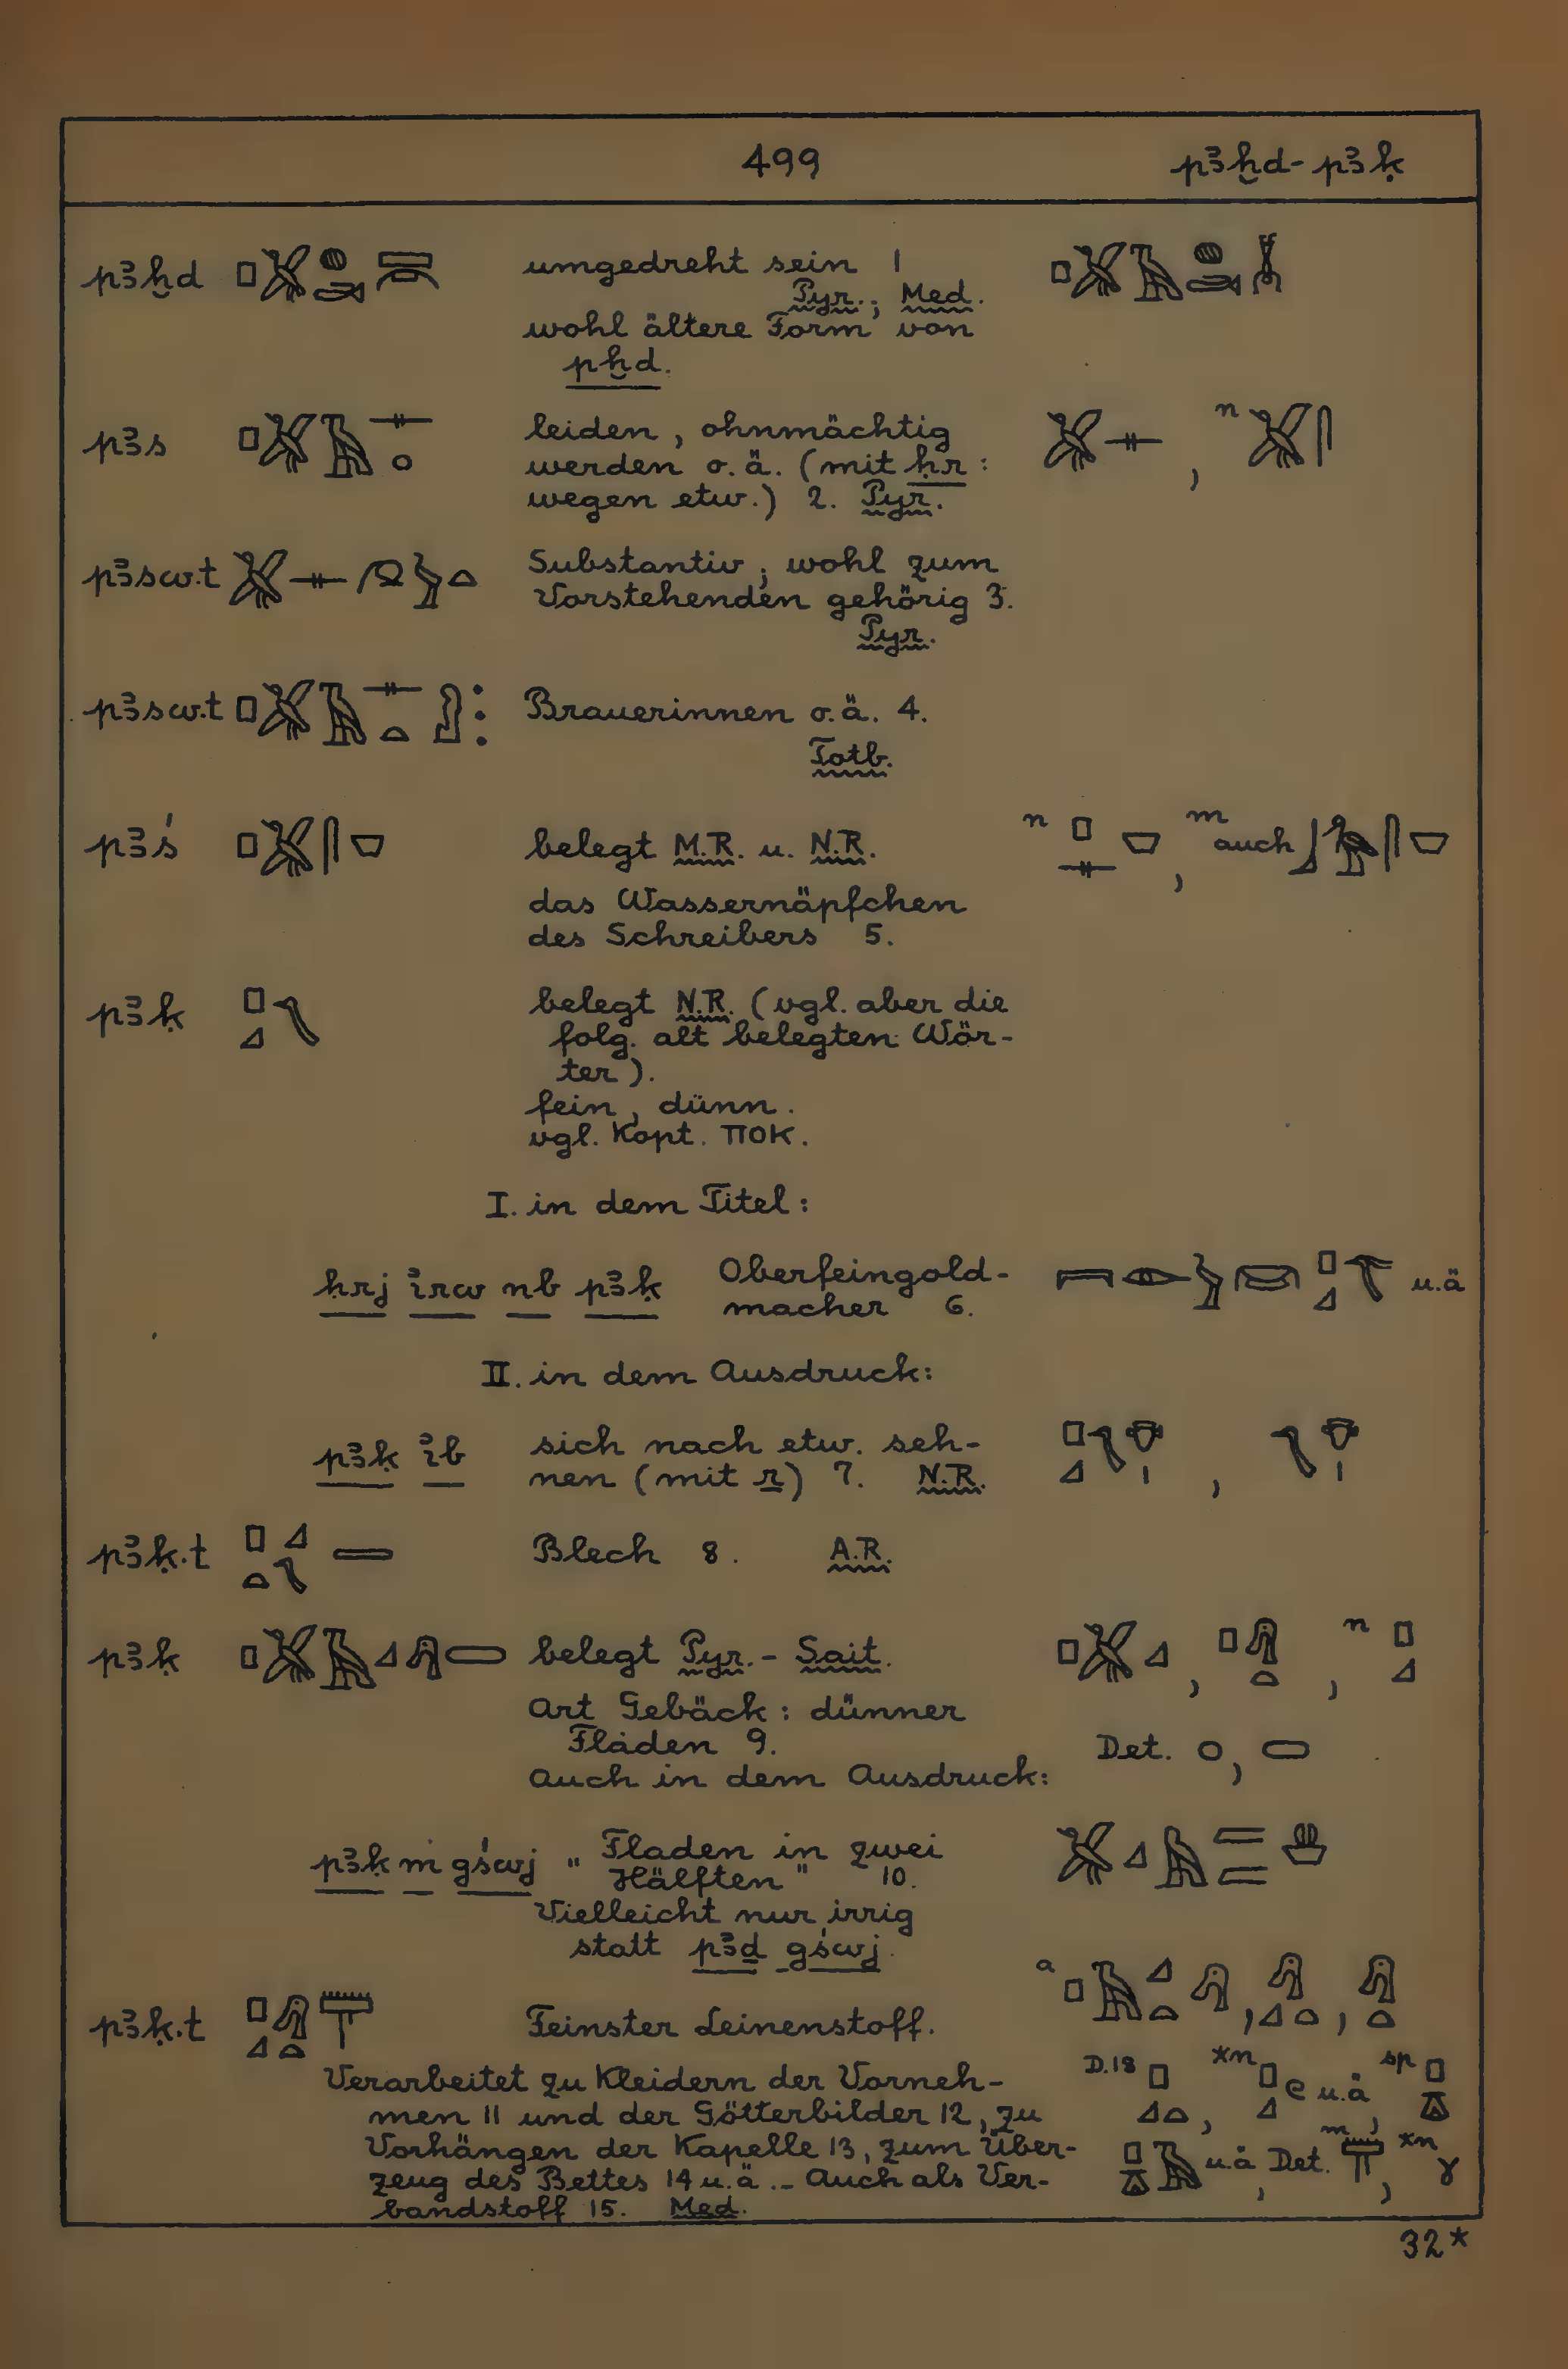 499 pꜣẖd - pꜣḳ
pꜣẖd umgedreht sein 1
Pyr.; Med.
wohl ältere Form von
pẖd.
pꜣs leiden, ohnmächtig
werden o.ä. (mit ḥr:
wegen etw.) 2. Pyr.
n
pꜣsw.t Substantiv; wohl zum
Vorstehenden gehörig 3.
Pyr.
pꜣsw.t Brauerinnen o.ä. 4.
Totb.
pꜣś belegt M.R. u. N.R. n , m auch
das Wassernäpfchen
des Schreibers 5.
pꜣḳ belegt N.R. (vgl. aber die
folg. alt belegten Wör-
ter).
fein, dünn.
vgl. Kopt. ⲡⲟⲕ.
I. in dem Titel:
ḥrj ỉrw nb pꜣḳ Oberfeingold- u.ä
macher 6.
II. in dem Ausdruck:
pꜣḳ ỉb sich nach etw. seh-
nen (mit r) 7. N.R.
pꜣḳ.t Blech 8. A.R.
pꜣḳ belegt Pyr. - Sait. n
Art Gebäck: dünner
Fladen 9. Det.
Auch in dem Ausdruck:
pꜣḳ m gśwj "Fladen in zwei
Hälften" 10.
Vielleicht nur irrig
statt pꜣḏ gśwj.
a
pꜣḳ.t Feinster Leinenstoff.
Verarbeitet zu Kleidern der Vorneh- D.18 *n u.ä sp
men 11 und der Götterbilder 12, zu
Vorhängen der Kapelle 13, zum Über- u.ä Det. m , *n
zeug des Bettes 14 u.ä. - Auch als Ver-
bandstoff 15. Med.
32*